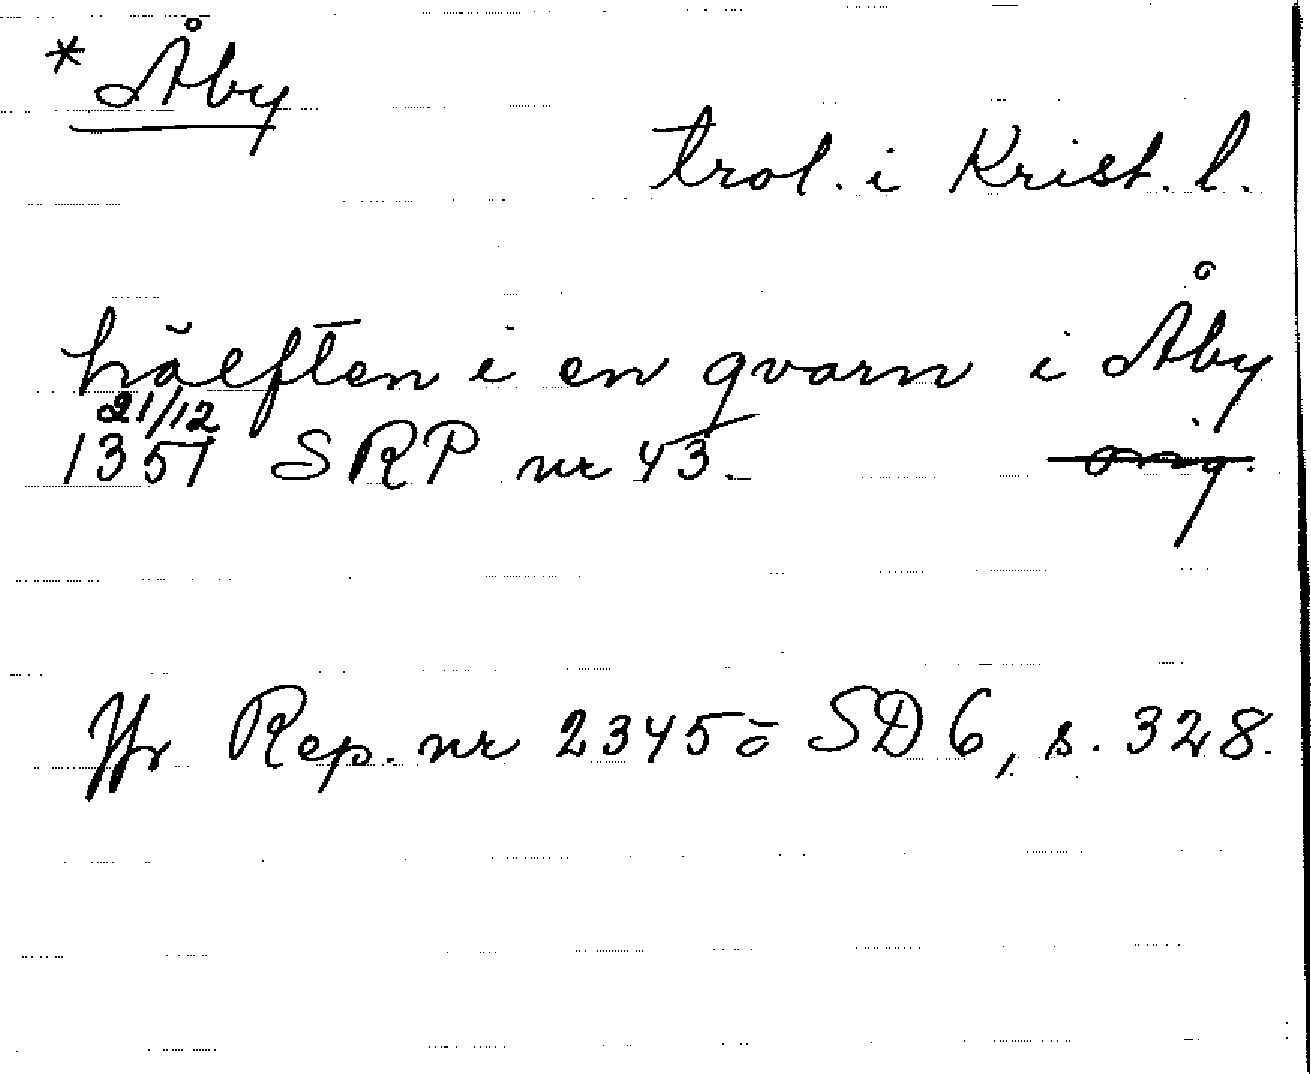 * Åby
trol. i Krist. l.
hälften i en qvarn i Åby
21/12
1357 SRP nr 43. orig.
Jfr Rep. nr 2345 o SD 6, s. 328.